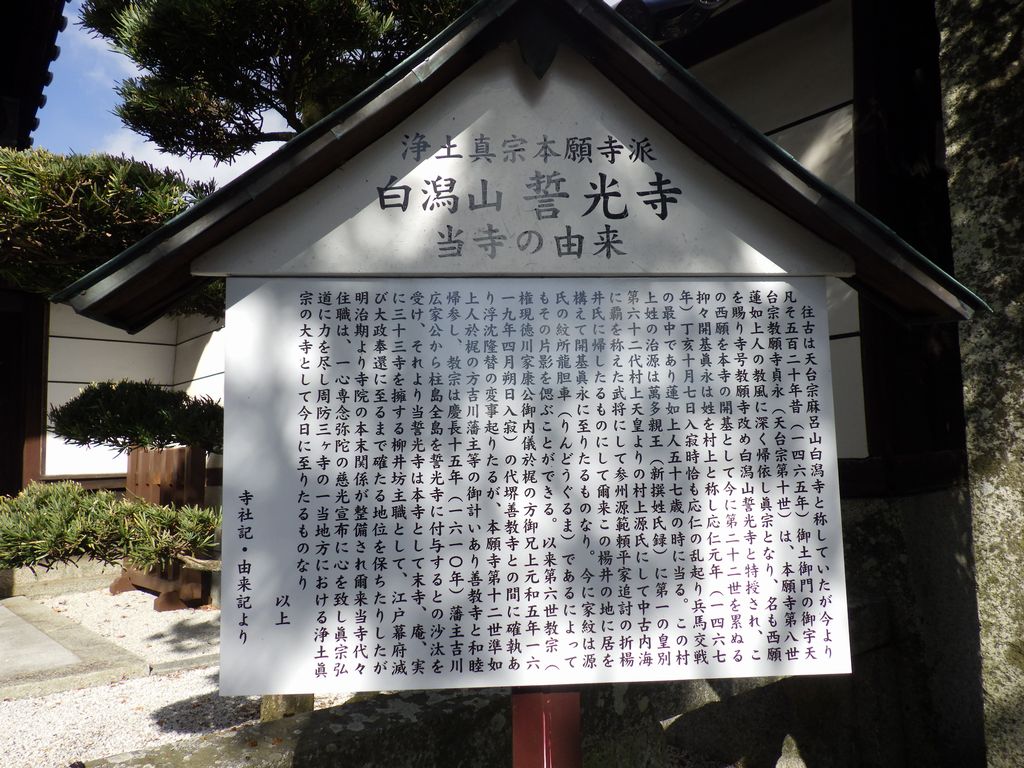 浄土真宗本願寺派
白潟山 誓光寺
当寺の由来
往古は天台宗麻呂山白潟寺と称していたが今より
凡そ五百二十年昔（一四六五年）御土御門の御宇天
台宗教願寺貞永（天台宗第十世）は、本願寺第八世
蓮如上人の教風に深く帰依し眞宗となり、名も西願
を賜り寺号教願寺改め白潟山誓光寺と特授され、こ
の西願を本寺の開基として今に第二十二世を累ぬる
抑々開基眞永は姓を村上と称し応仁元年（一四六七
年）丁亥十月十七日入寂時恰も応仁の乱起り兵馬交戦
の最中であり蓮如上人五十七歳の時に当る。この村
上姓の治源は萬多親王（新撰姓氏録）に第一の皇別
第六十二代村上天皇よりの村上源氏にして中古内海
に覇を称えた武将にして参州源範頼平家追討の折楊
井氏に帰したるものにして爾来この楊井の地に居を
構えて開基眞永に至りたるものなり。今に家紋は源
氏の紋所龍胆車（りんどうぐるま）であるによって
もその片影を偲ぶことができる。以来第六世教宗（
権現徳川家康公御内儀於梶の方御兄上元和五年一六
一九年四月朔日入寂）の代堺善教寺との間に確執あ
り浮沈隆替の変事起りたるが、本願寺第十二世準如
上人於梶の方吉川藩主等の御計いあり善教寺と和睦
帰参し、教宗は慶長十五年（一六一〇年）藩主吉川
広家公から柱島全島を誓光寺に付与するとの沙汰を
受け、それより当誓光寺は本寺として末寺、庵、実
に三十三寺を擁する柳井坊主職として、江戸幕府滅
び大政奉還に至るまで確たる地位を保ちたりしたが
明治期より寺院の本末関係が整備され爾来当寺代々
住職は、一心専念弥陀の慈光宣布に心を致し眞宗弘
道に力を尽し周防三ヶ寺の一当地方における浄土眞
宗の大寺として今日に至りたるものなり
以上
寺社記・由来記より